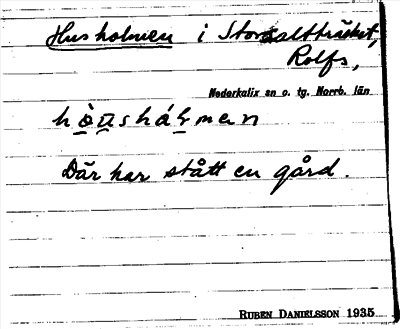 Husholmen i Storsaltträsket,
Rolfs,
Nederkalix sn o. tg. Norrb. län
hòu̲shál̲men
Där har stått en gård.
RUBEN DANIELSSON 1935